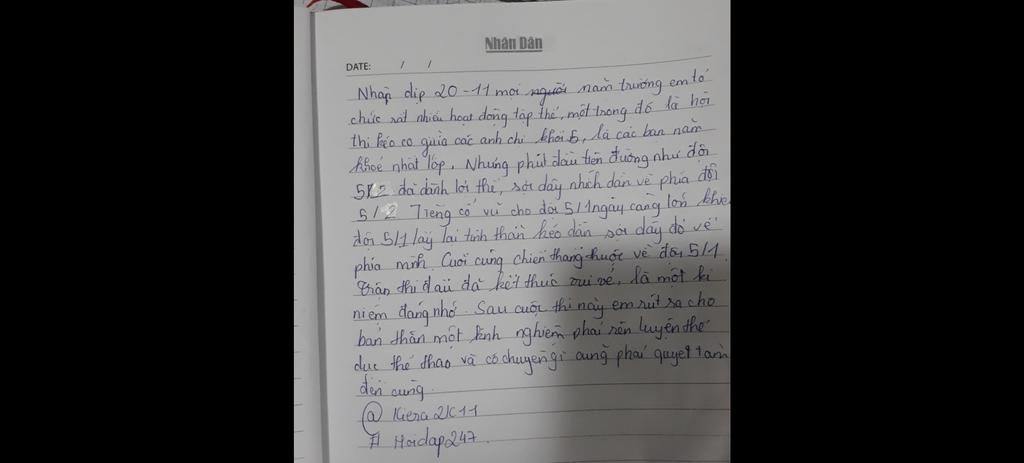 Nhân Dân
DATE: / /
Nhân dịp 20-11 mọi người năm trường em tổ
chức rất nhiều hoạt động tập thể, một trong đó là hội
thi kéo co giữa các anh chị khối 5, là các bạn nam
khoẻ nhất lớp. Nhưng phút đầu tiên đường như đội
5/2 đã dành lợi thế, sợi dây nhích dần về phía đội
5/2 Tiếng cổ vũ cho đội 5/1 ngày càng lớn khiến
đội 5/1 lấy lại tinh thần kéo dần sợi dây đỏ về
phía mình. Cuối cùng chiến thắng thuộc về đội 5/1.
Trận thi đấu đã kết thúc vui vẻ, là một kỉ
niệm đáng nhớ. Sau cuộc thi này em rút ra cho
bản thân một kinh nghiệm phải rèn luyện thể
dục thể thao và có chuyện gì cũng phải quyết tâm
đến cùng.
@ Kiera2K11
# Hoidap247.